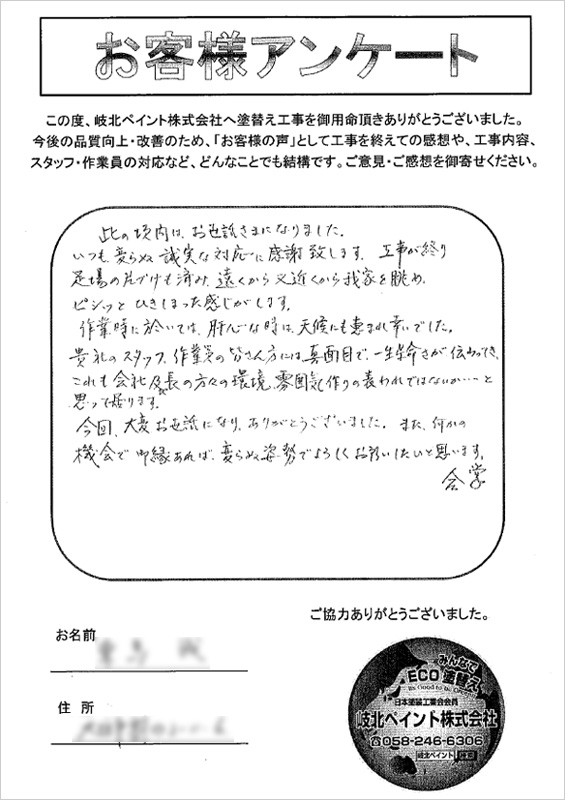 お客様アンケート
この度、岐北ペイント株式会社へ塗替え工事を御用命頂きありがとうございました。
今後の品質向上・改善のため、「お客様の声」として工事を終えての感想や、工事内容、
スタッフ・作業員の対応など、どんなことでも結構です。ご意見・ご感想を御寄せください。
此の境内は、お世話さまになりました。
いつも、変らぬ誠実な対応に感謝致します。工事が終り
足場の片づけも済み、遠くから又近くから我家を眺め、
ピシッと ひきしまった感じがします。
作業時に於いては、肝心な時は、天候にも恵まれ幸いでした。
貴社のスタッフ、作業員の皆さん方には、真面目で、一生懸命さが伝わってき、
これも会社及長の方々の環境、雰囲気作りの表われではないか…と
思って居ります。
今回、大変お世話になり、ありがとうございました。また、何かの
機会で御縁あれば、変らぬ姿勢でよろしくお願いしたいと思います。
合掌
ご協力ありがとうございました。
お名前
住所
みんなで
ECO塗替え
It's Good to be Green
日本塗装工業会会員
岐北ペイント株式会社
☎058-246-6306
岐北ペイント 検索